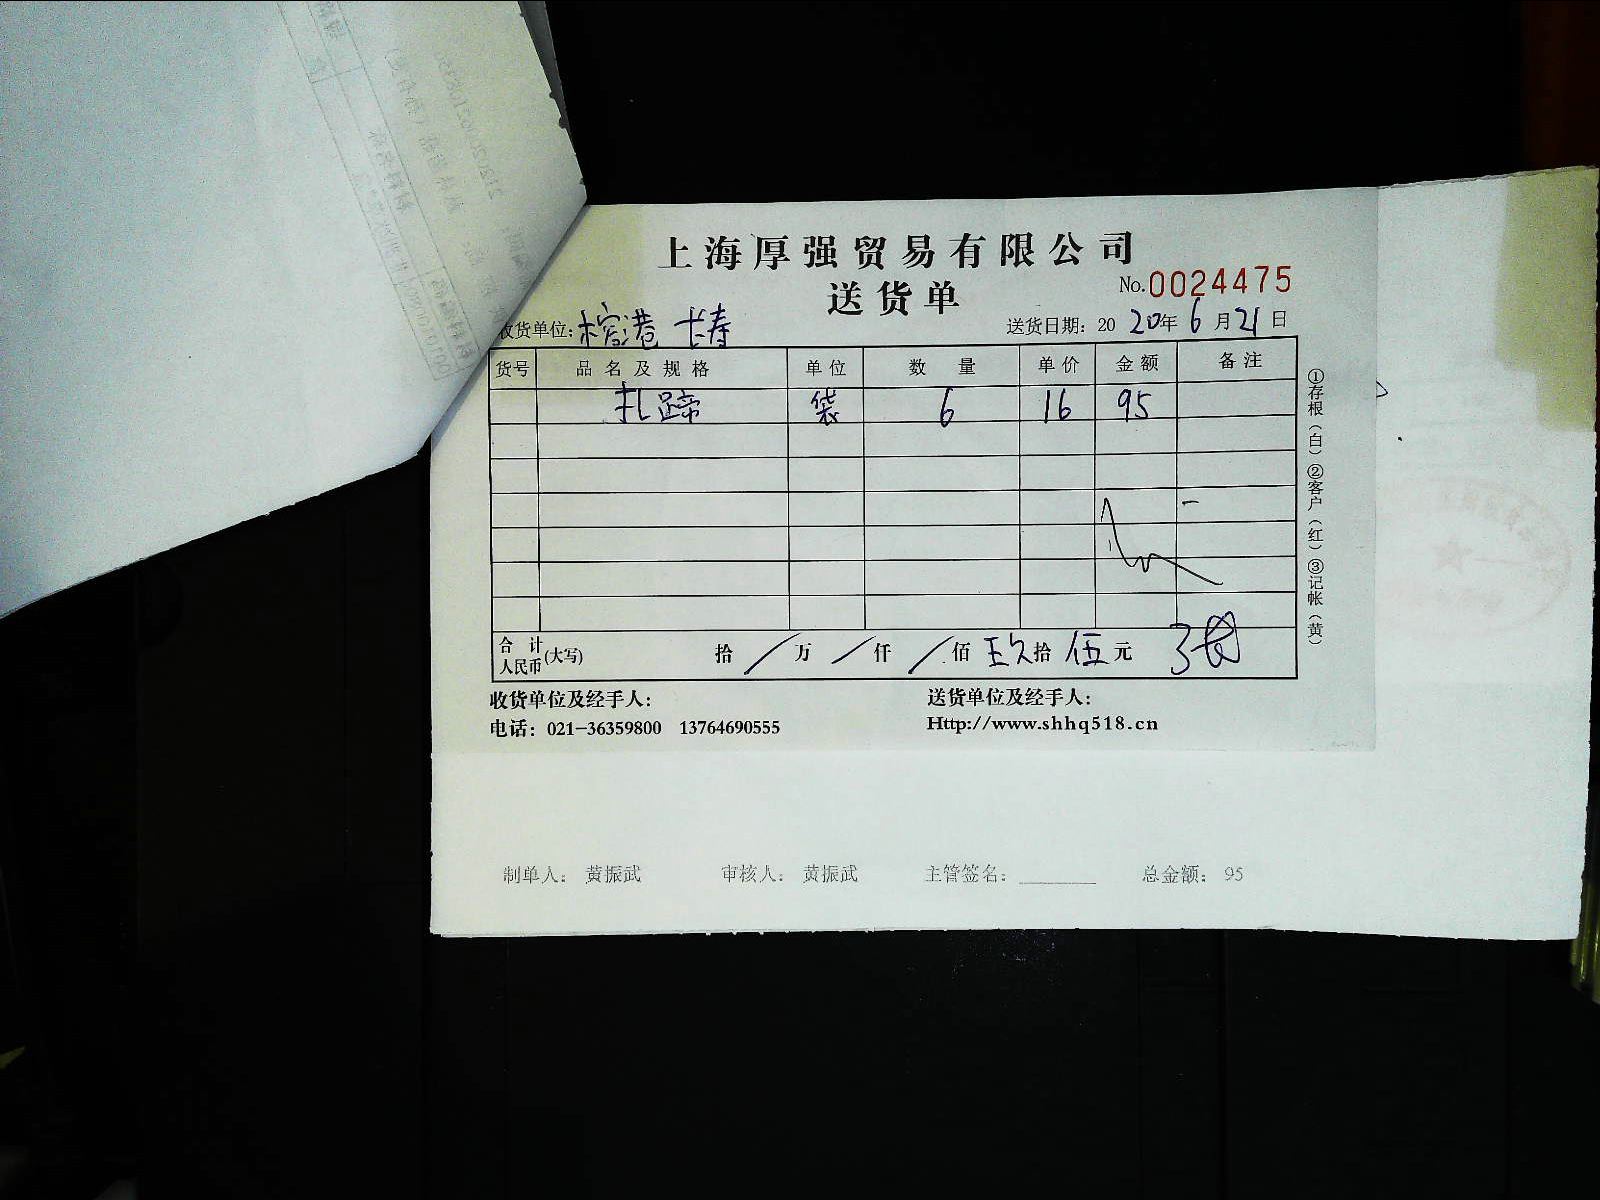 上海厚强贸易有限公司
送货单
No.0024475
收货单位：榕港 长寿
送货日期：2020年6月21日
货号 品名及规格 单位 数量 单价 金额 备注
扎蹄 袋 6 16 95
合计人民币(大写) 拾/万/仟/佰玖拾伍元
①存根（白）②客户（红）③记帐（黄）
收货单位及经手人：
送货单位及经手人：
电话：021-36359800 13764690555
Http://www.shhq518.cn
制单人：黄振武 审核人：黄振武 主管签名：________ 总金额：95